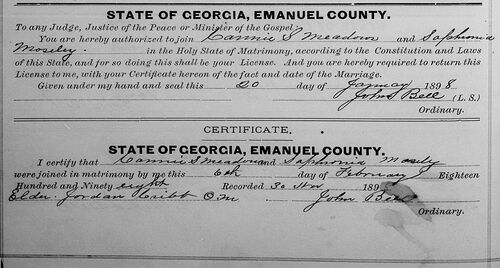 STATE OF GEORGIA, EMANUEL COUNTY.
To any Judge, Justice of the Peace or Minister of the Gospel
You are hereby authorized to join Cannie S Meadows and Saphronia
Moseley in the Holy State of Matrimony, according to the Constitution and Laws
of this State, and for so doing this shall be your License. And you are hereby required to return this
License to me, with your Certificate hereon of the fact and date of the Marriage.
Given under my hand and seal this 20 day of January 1898
John S Bell (L. S.)
Ordinary.
CERTIFICATE.
STATE OF GEORGIA, EMANUEL COUNTY.
I certify that Cannie S Meadows and Saphronia Mosely
were joined in matrimony by me this 6th day of February Eighteen
Hundred and Ninety eight Recorded 30 189
Elder. Jordan Cribb O.M John Bell
Ordinary.